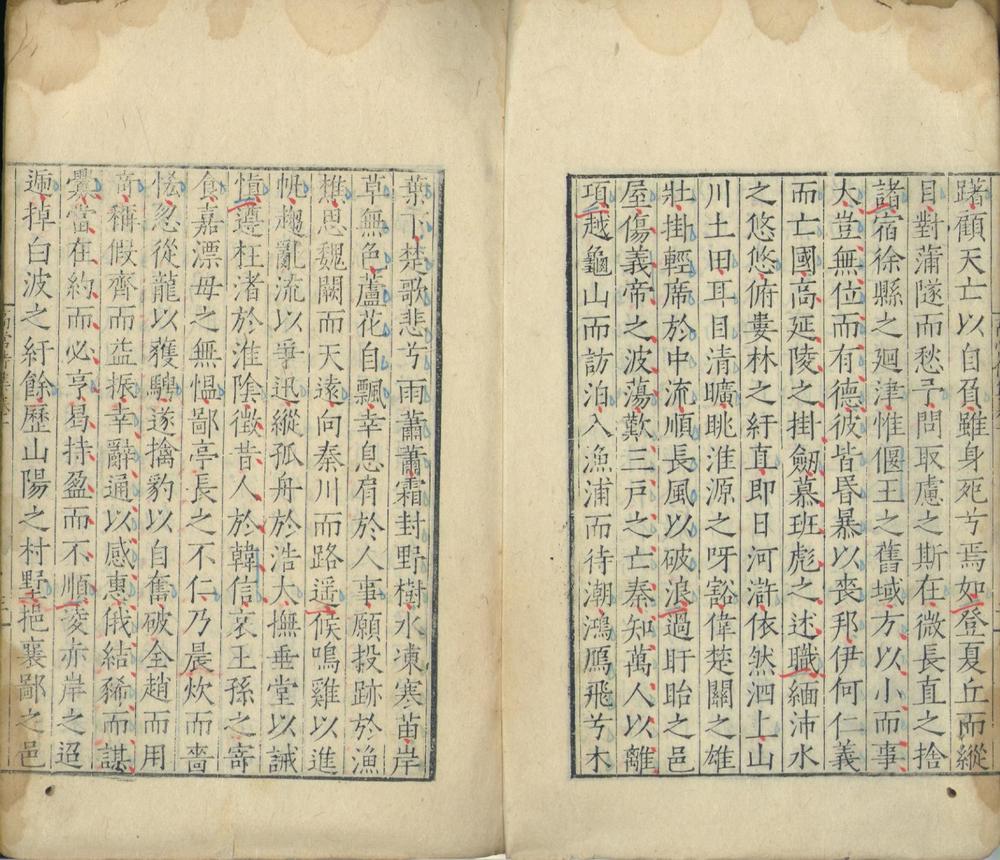 躇顧天亡以自負雖身死兮焉如登夏丘而縱
目對蒲隧而愁予問取慮之斯在微長直之捨
諸宿徐縣之廻津惟偃王之舊域方以小而事
大豈無位而有德彼皆昬暴以喪邦伊何仁義
而亡國高延陵之掛劒慕班彪之述職緬沛水
之悠悠俯婁林之紆直即日河滸依然泗上山
川土田耳目清曠眺淮源之呀豁偉楚關之雄
壯掛輕席於中流順長風以破浪過盱眙之邑
屋傷義帝之波蕩歎三戶之亡秦知萬人以離
項越龜山而訪泊入漁浦而待潮鴻鴈飛兮木
葉下楚歌悲兮雨蕭蕭霜封野樹水凍寒苗岸
草無色蘆花自飄幸息肩於人事願投跡於漁
樵思魏闕而天遠向秦川而路遥候鳴雞以進
帆趨亂流以爭迅縱孤舟於浩大撫垂堂以誡
慎遵枉渚於淮陰徵昔人於韓信哀王孫之寄
食嘉漂母之無愠鄙亭長之不仁乃晨炊而嗇
恡忽從龍以獲騁遂擒豹以自奮破全趙而用
奇稱假齊而益振幸辭通以感惠俄結豨而謀
釁當在約而必亨曷持盈而不順凌赤岸之迢
遞棹白波之紆餘歷山陽之村野挹襄鄙之邑